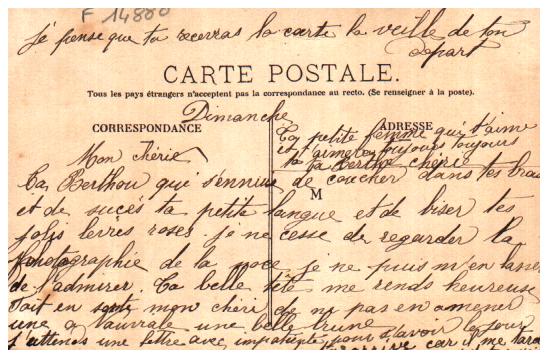 F 14800
je pense que ta recevras la carte la veille de ton
départ
CARTE POSTALE.
Tous les pays étrangers n'acceptent pas la correspondance au recto. (Se renseigner à la poste).
Dimanche
CORRESPONDANCE
ADRESSE
Ta petite femme qui t'aime
et t'aimera toujours toujours
ta Berthe chérie
Mon chérie
Ta Berthou qui s'ennuie de coucher dans tes bras
M
et de sucès ta petite langue et de biser tes
jolies lèvres roses. je ne cesse de regarder la
photographie de la noce, je ne puis m'en lasser
de l'admirer. Ta belle tête me rends heureuse
Tait en mon chéri de ne pas en amener
une a une belle brune
j'attends une lettre avec impatiente pour savoir le jour
car il me tard